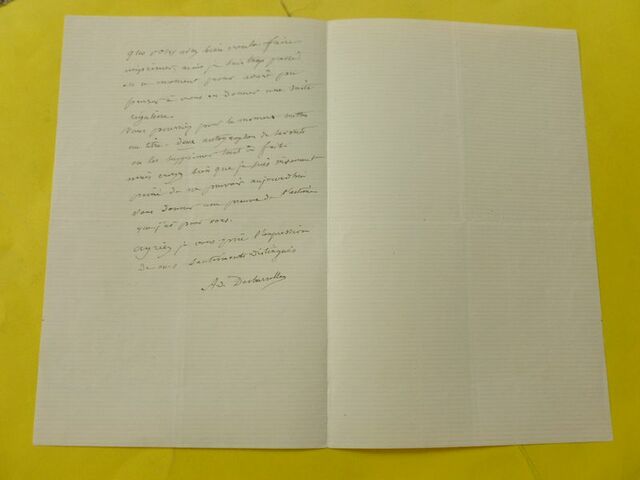 que vous avez bien voulu faire
imprimer, mais je suis trop pressé
en ce moment pour avoir pu
penser à vous en donner une suite
régulière.
Vous pourriez pour le moment mettre
en titre. deux autographes de savants
ou les supprimer tout à fait
mais croyez bien que je suis vraiment
peiné de ne pouvoir aujourd'hui
vous donner une preuve de l'estime
que j'ai pour vous.
agréez je vous prie l'expression
de mes sentiments distingués
Ad. Desbarrolles